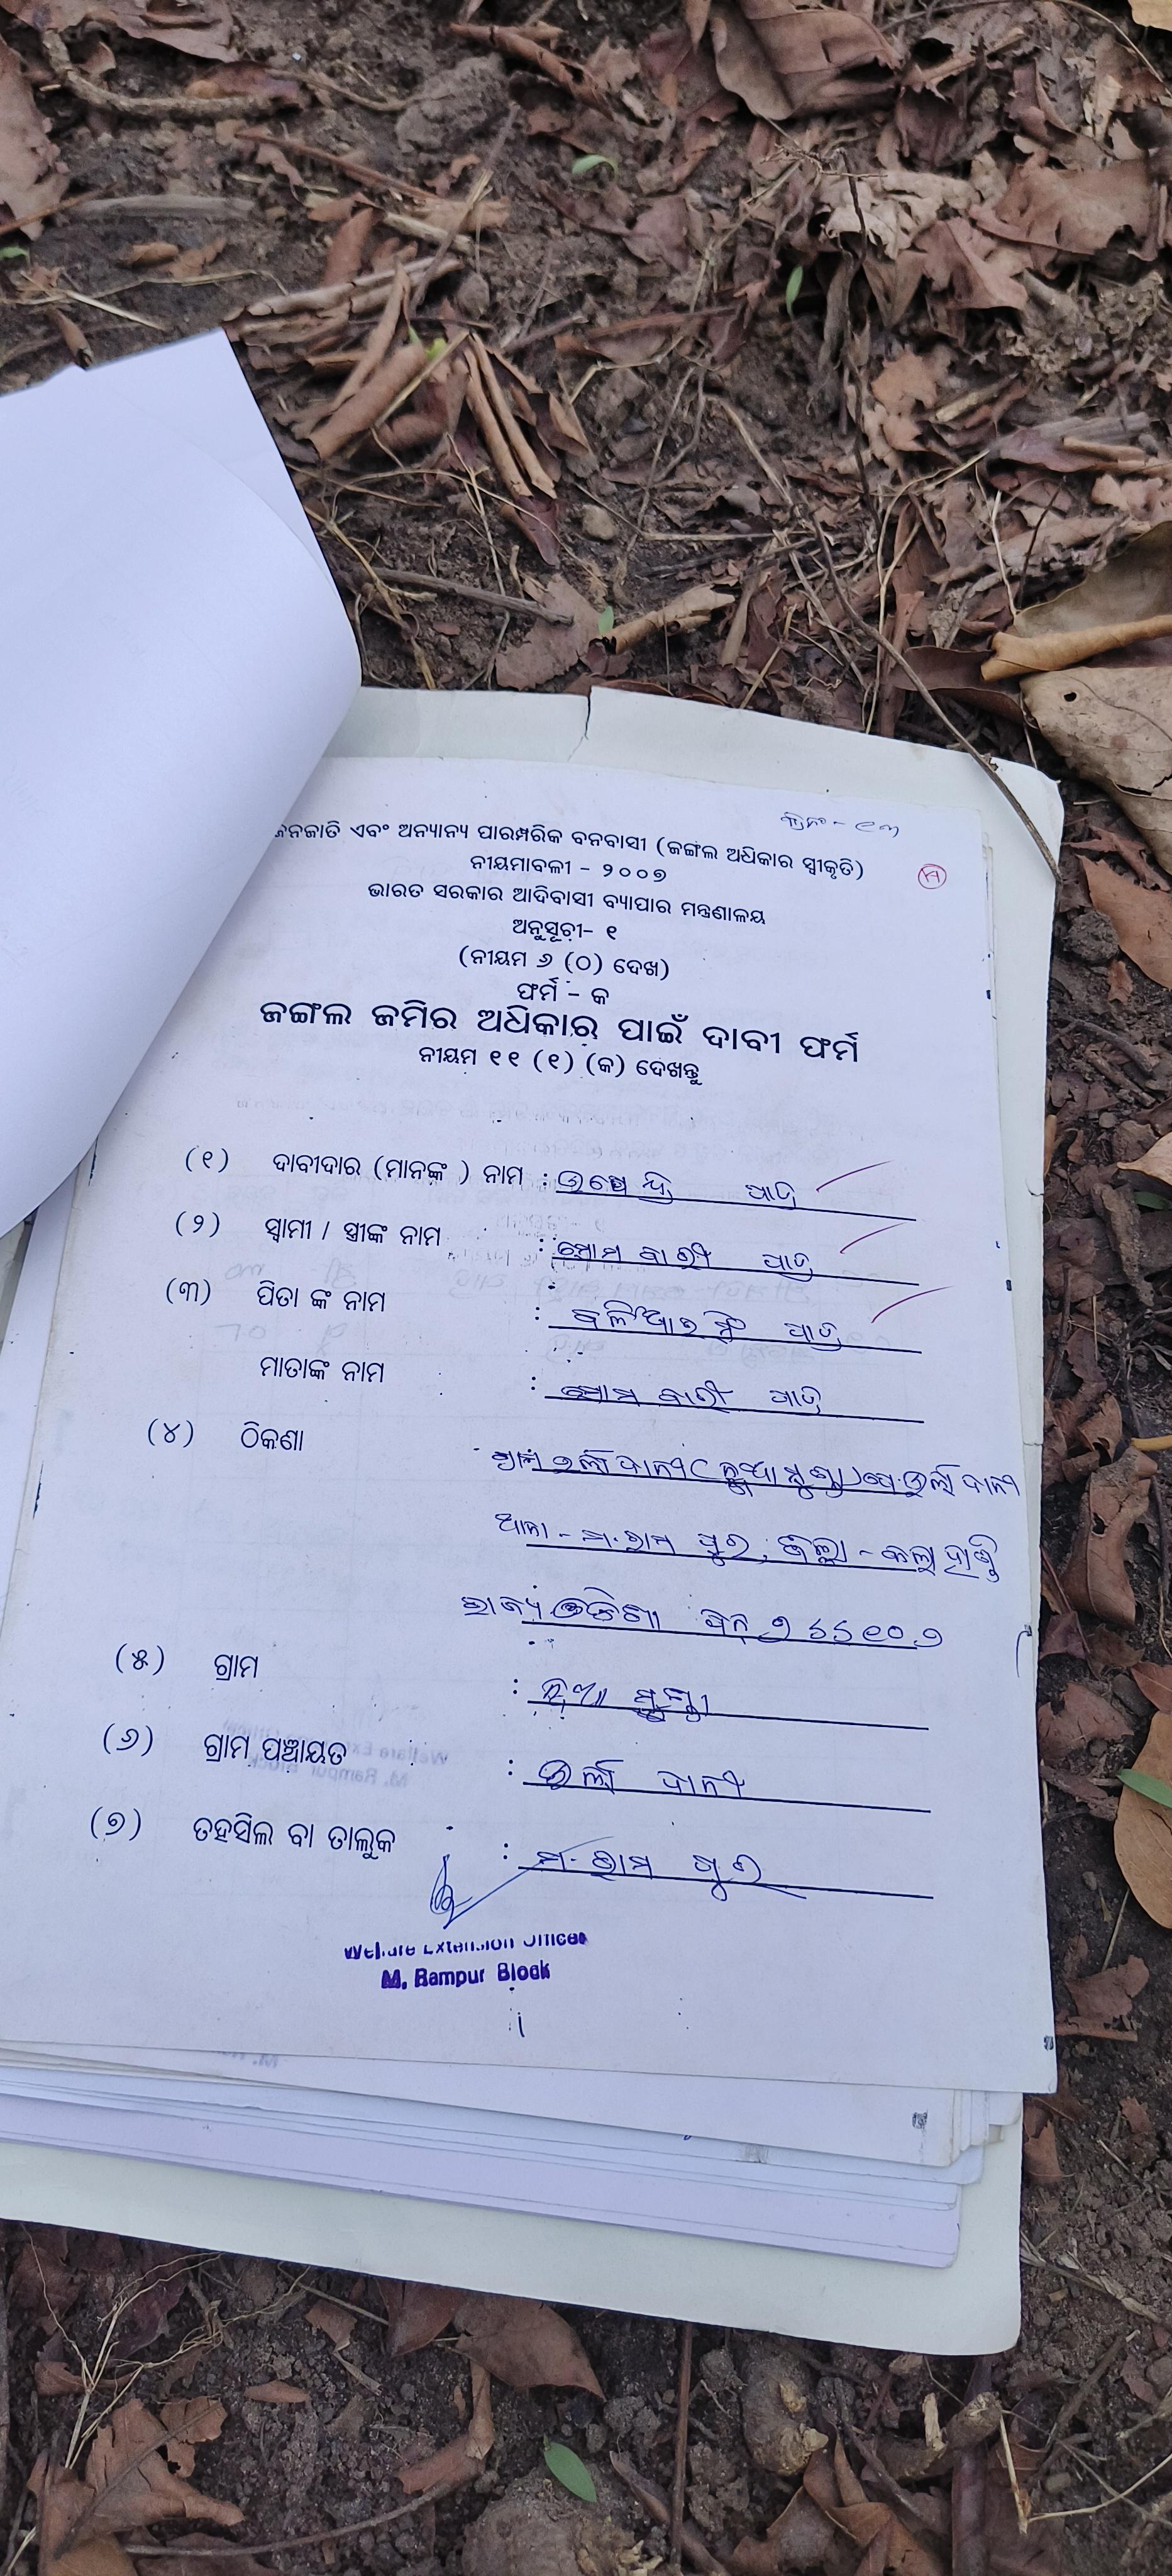 କ୍ରିନଂ - ୧୩
ଜନଜାତି ଏବଂ ଅନ୍ୟାନ୍ୟ ପାରମ୍ପରିକ ବନବାସୀ (ଜଙ୍ଗଲ ଅଧିକାର ସ୍ୱୀକୃତି)
ନୀୟମାବଳୀ - ୨୦୦୭
ଭାରତ ସରକାର ଆଦିବାସୀ ବ୍ୟାପାର ମନ୍ତ୍ରଣାଳୟ
ଅନୁସୂଚୀ- ୧
(ନୀୟମ ୬ (ଠ) ଦେଖ)
ଫର୍ମ - କ
ଜଙ୍ଗଲ ଜମିର ଅଧିକାର ପାଇଁ ଦାବୀ ଫର୍ମ
ନୀୟମ ୧୧ (୧) (କ) ଦେଖନ୍ତୁ
(୧) ଦାବୀଦାର (ମାନଙ୍କ ) ନାମ : ଉପେନ୍ଦ୍ର ପାତ୍ର
(୨) ସ୍ୱାମୀ / ସ୍ତ୍ରୀଙ୍କ ନାମ : ପାତ୍ର
(୩) ପିତା ଙ୍କ ନାମ : ପାତ୍ର
ମାତାଙ୍କ ନାମ : ପାତ୍ର
(୪) ଠିକଣା
ଥାନା - ମ.ରାମ ପୁର, ଜିଲ୍ଲା - କଳାହାଣ୍ଡି
ରାଜ୍ୟ ଓଡିଶା ପିନ୍ ୭୬୬୧୦୨
(୫) ଗ୍ରାମ : ନୂଆ ମୁଣ୍ଡା
(୬) ଗ୍ରାମ ପଞ୍ଚାୟତ :
(୭) ତହସିଲ ବା ତାଲୁକ : ମ. ରାମ ପୁର
Welfare Extension Officer
M. Rampur Block